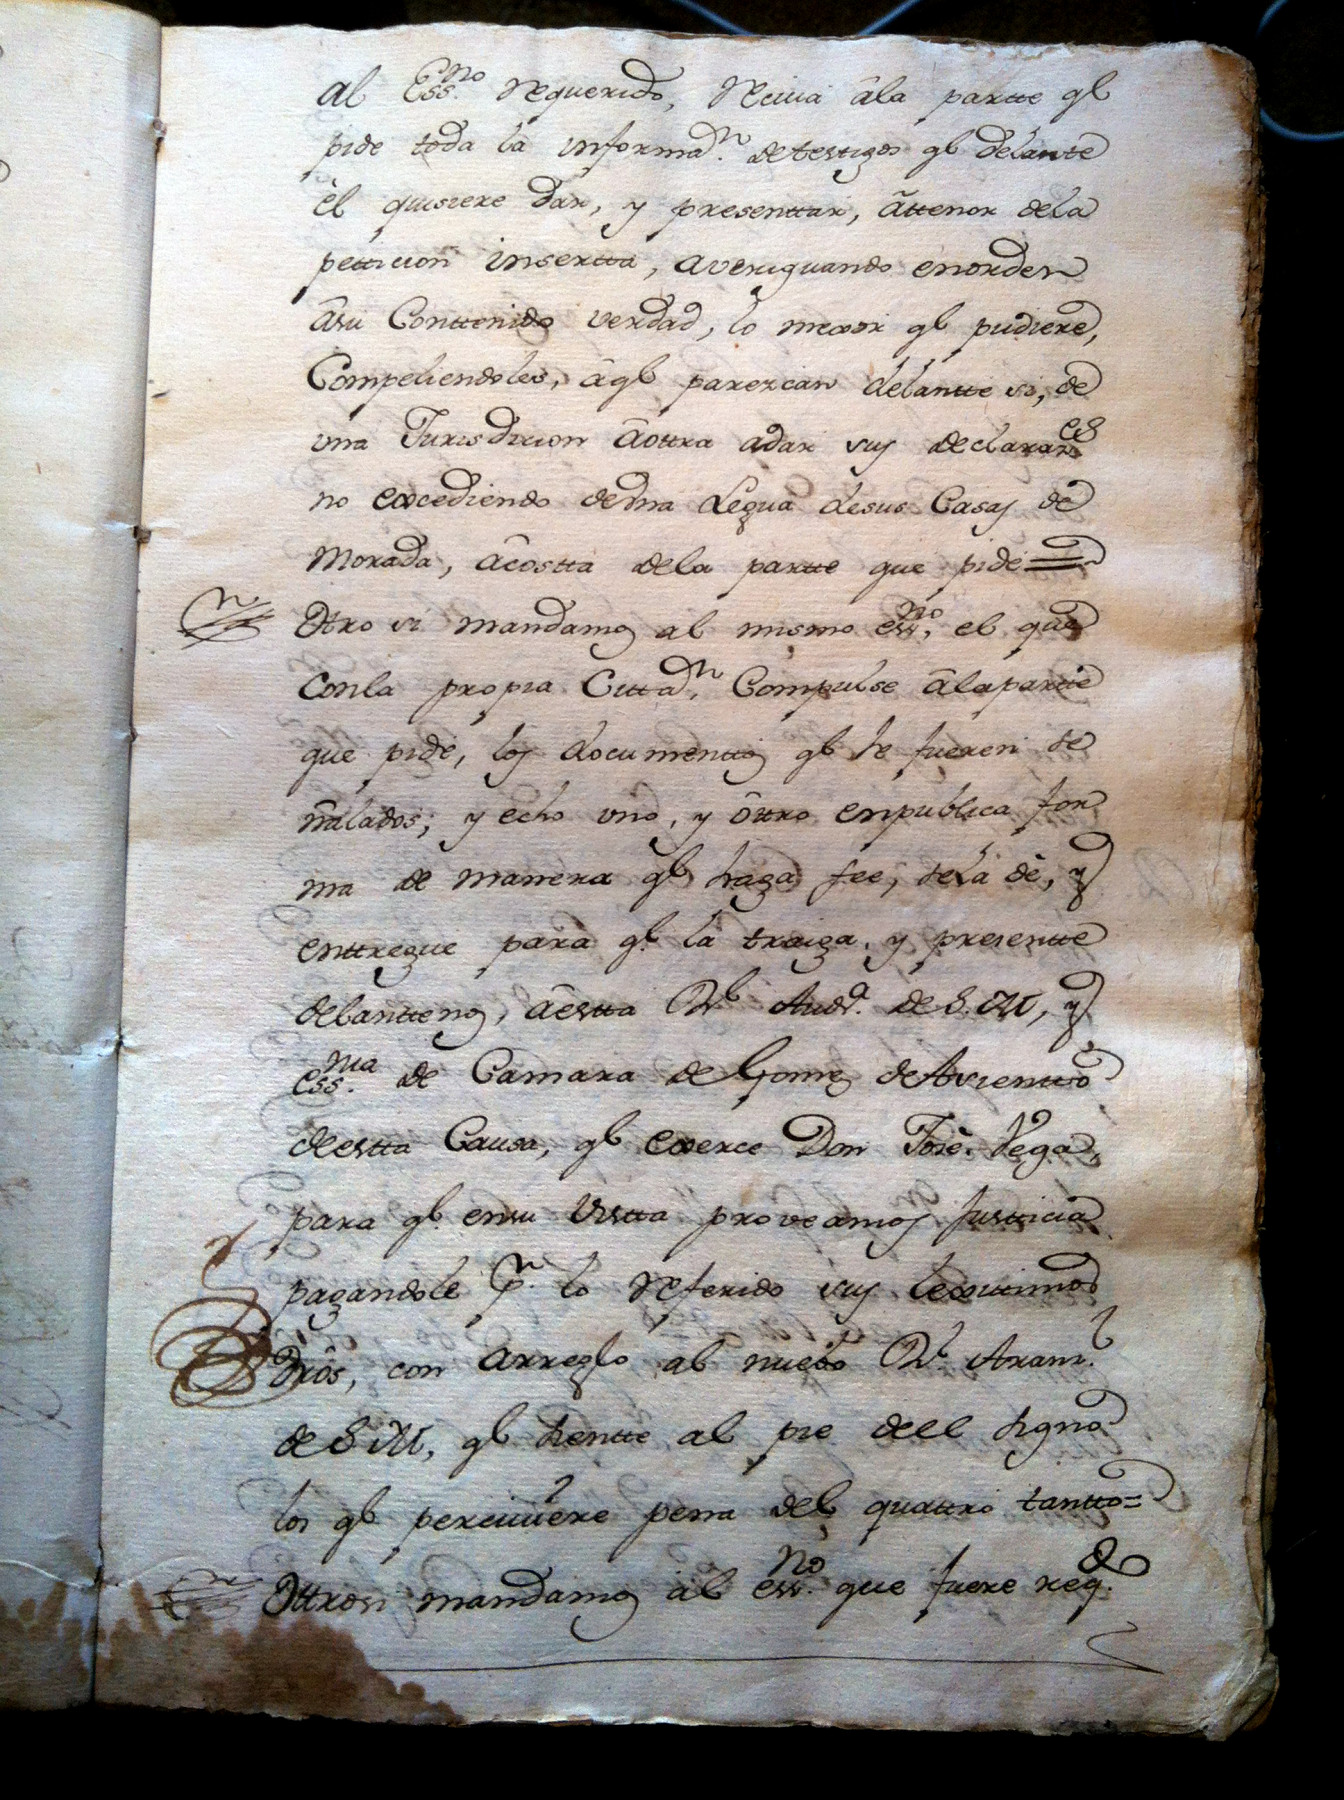 al Ess.no requerido, reciva â la partte q.e
pide toda la informa.n de testigos q.e delante
èl quisiere dar, y presenttar, âttenor dela
petticion insertta, averiguando enorden
âsu Conttenido verdad, lo mexor q.e pudiere,
Compeliendoles, âq.e parezcan delantte si, de
una Jurisdicion âottra adar sus declarac.es
no excediendo deuna Legua desus Casas de
Morada, âcostta dela partte que pide =
Otro si mandamos al mismo ess.no, el que
Conla propia Citta.n Compulse âlapartte
que pide, los documenttos q.e le fueren se
ñalados; y echo uno, y ôttro enpublica for
ma de manera q.e haga fee, sela dè, y
enttregue para q.e la traiga, y presentte
delanttenos, âestta R.l Aud.a de S.M, y
ess.nia de Camara de Gomez de Asientto
deestta Causa, q.e exerce Don Josè Vega,
para q.e ensu Vistta proveamos Justticia
pagandole p.r lo referido sus lexittimos
drôs, con arreglo al nuebo R.l Aran.l
de S.M, q.e sientte al pie deel signo
los q.e percivière pena del quattro tantto =
Ottrosi mandamos âl ess.no que fuere req.do